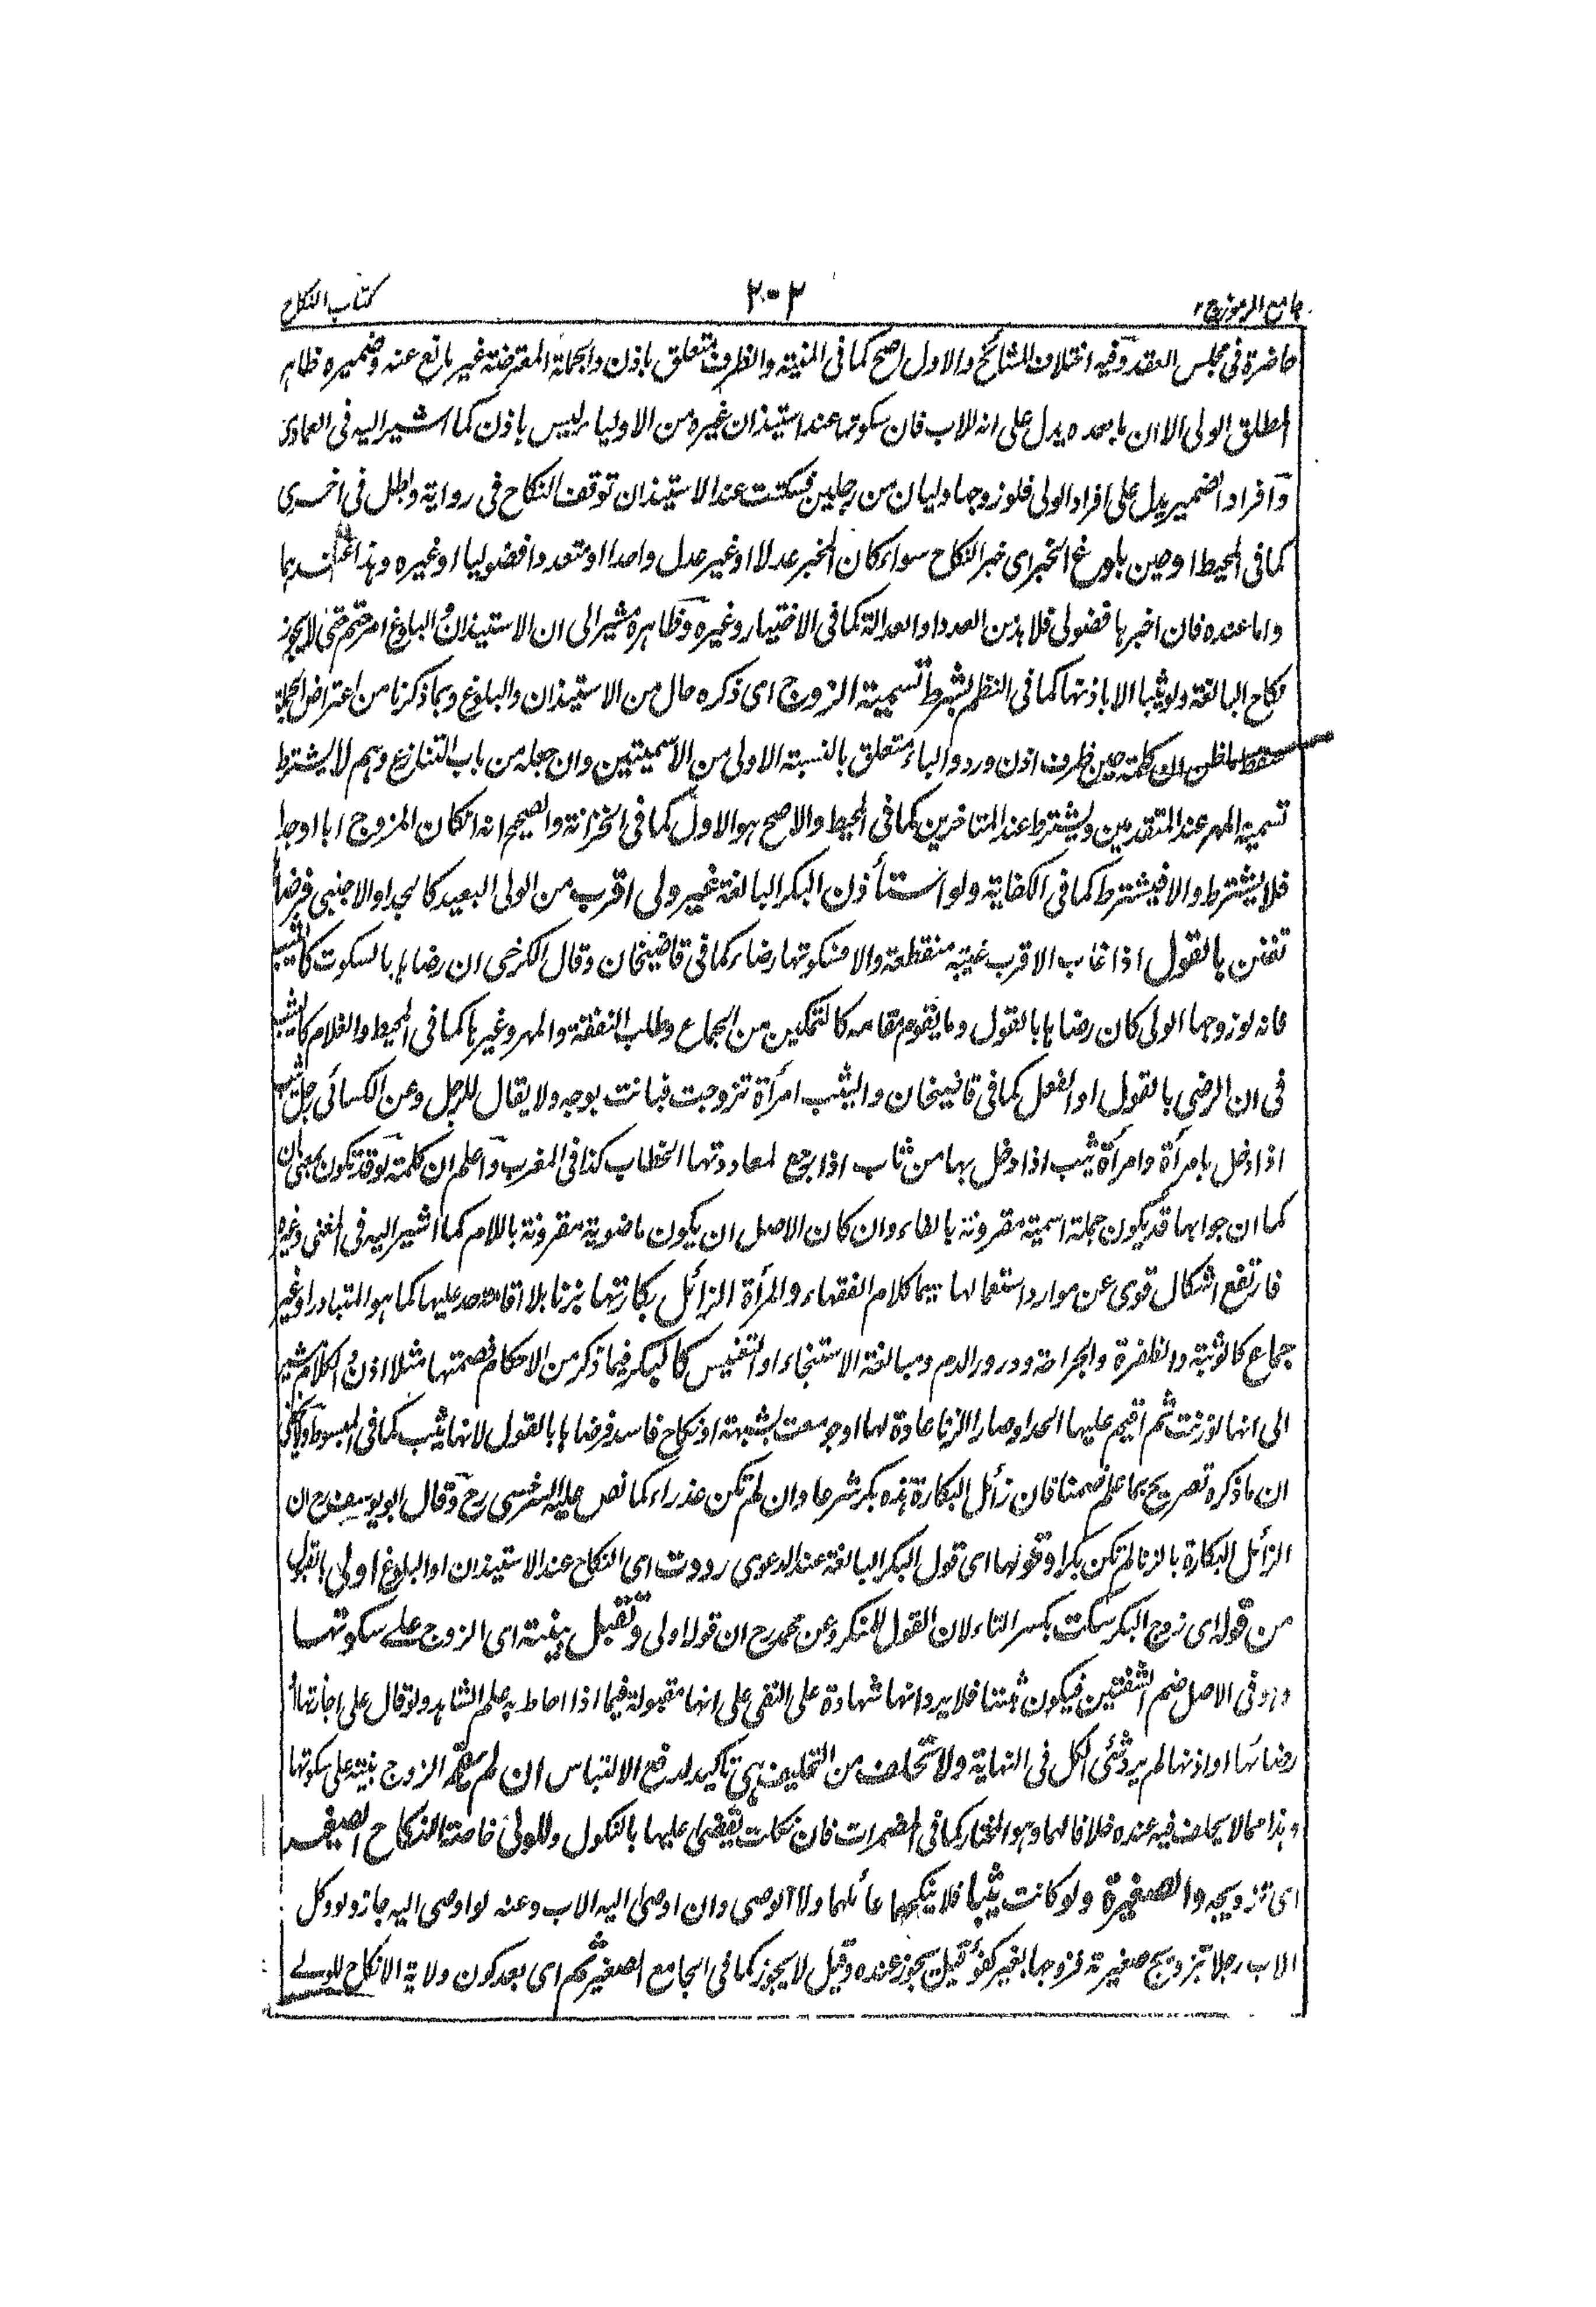 جامع الرموز ج ٢
٢٠٢
كتاب النكاح
حاضرة فى مجلس العقد وفيه اختلاف المشائخ والاول اصح كما فى المنية والظرف متعلق باذن والجملة المعترضة غير مانع عنه وضميره ظاهر
المطلق الولى الا ان ما بعده يدل على انه للاب فان سكوتها عند استيذان غيره من الاولياء ليس باذن كما اشير اليه فى العمادى
وافراد الضمير يدل على افراد الولى فلو زوجها وليان من رجلين فسكتت عند الاستيذان توقف النكاح فى رواية وبطل فى اخرى
كما فى المحيط او حين بلوغ الخبر اى خبر النكاح سواء كان المخبر عدلا او غير عدل واحدا او متعددا فضوليا او غيره وهذا عندهما
واما عنده فان اخبرها فضولى فلا بد من العدد او العدالة كما فى الاختيار وغيره وظاهره مشير الى ان الاستيذان والبلوغ امر حتم حتى لا يجوز
نكاح البالغة ولو ثيبا الا باذنها كما فى النظم بشرط تسمية الزوج اى ذكره حال من الاستيذان والبلوغ وبما ذكرنا من اعتراض الجملة
سقط ما ظن ان كلمة حين ظرف اذن ورد والباء متعلق بالنسبة الاولى من الاسميتين وان جعله من باب التنازع وهم لا يشترط
تسمية المهر عند المتقدمين ويشترط عند المتاخرين كما فى المحيط والاصح هو الاول كما فى الخزانة والصحيح انه ان كان المزوج ابا او جدا
فلا يشترط والا فيشترط كما فى الكفاية ولو استأذن البكر البالغة غير ولى اقرب من الولى البعيد كالجد او الاجنبى فرضاها
تفنن بالقول اذا غاب الاقرب غيبة منقطعة والا فسكوتها رضاء كما فى قاضيخان وقال الكرخى ان رضاها بالسكوت كالثيب
فانه لو زوجها الولى كان رضاها بالقول وما يقوم مقامه كالتمكين من الجماع وطلب النفقة والمهر وغيرها كما فى المحيط والغلام كالثيب
فى ان الرضى بالقول او الفعل كما فى قاضيخان والثيب امرأة تزوجت فبانت بوجه ولا يقال للرجل وعن الكسائى رجل ثيب
اذا دخل بامرأة وامرأة ثيب اذا دخل بها من ثاب اذا رجع لمعاودتها الخطاب كذا فى المغرب واعلم ان كلمة لو قد تكون بمعنى ان
كما ان جوابها قد يكون جملة اسمية مقرونة بالفاء وان كان الاصل ان يكون ماضوية مقرونة باللام كما اشير اليه فى المغنى وغيره
فارتفع اشكال قوى عن موارد استعمالها سيما كلام الفقهاء والمرأة الزائل بكارتها بزنا بلا اقامة حد عليها كما هو المتبادر او غير
جماع كالوثبة والظفرة والجراحة ودرور الدم ومبالغة الاستنجاء او التعنيس كالبكر فيما ذكر من الاحكام فصمتها مثلا اذن والكلام مشير
الى انها لو زنت ثم اقيم عليها الحد او صار الزنا عادة لها او جومعت بشبهة او نكاح فاسد فرضاها بالقول لانها ثيب كما فى المبسوط
ان ما ذكره تصريح بما علم ضمنا فان زائل البكارة هذه بكر شرعا وان لم تكن عذراء كما نص عليه السرخسى رح وقال ابو يوسف رح ان
الزائل البكارة بالزنا لم تكن بكرا وقولها اى قول البكر البالغة عند الدعوى رددت اى النكاح عند الاستيذان او البلوغ اولى بالقبول
من قوله اى زوج البكر سكت بكسر التاء لان القول للمنكر وعن محمد رح ان قوله اولى وتقبل بينته اى الزوج على سكوتها
وهو فى الاصل ضم الشفتين فيكون مثبتا فلا يرد انها شهادة على النفى على انها مقبولة فيما اذا احاط به علم الشاهد ولو قال على اجازتها
رضائها او اذنها لم يرد شئى الكل فى النهاية ولا تحلف من التحليف هى تاكيد لدفع الالتباس ان لم يقم الزوج بينة على سكوتها
وهذا مما لا يحلف فيه عنده خلافا لهما وهو المختار كما فى المضمرات فان نكلت يقضى عليها بالنكول وللولى خاصة النكاح الصغير
اى تزويجه والصغيرة ولو كانت ثيبا فلا ينكحها عائلهما ولا الوصى وان اوصى اليه الاب وعنه لو اوصى اليه جاز ولو وكل
الاب رجلا بتزويج صغيرته فزوجها بغير كفؤ قيل يجوز عنده وقيل لا يجوز كما فى الجامع الصغير ثم اى بعد كون ولاية الانكاح للولى